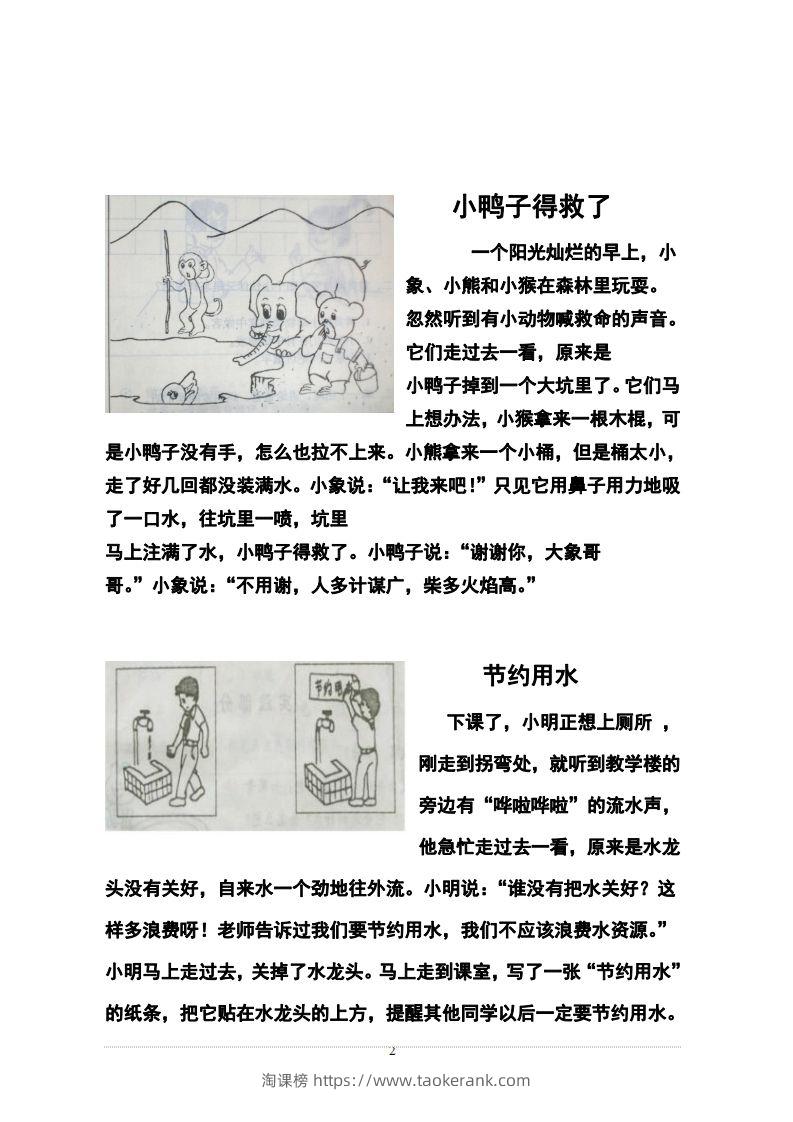 小鸭子得救了
一个阳光灿烂的早上，小
象、小熊和小猴在森林里玩耍。
忽然听到有小动物喊救命的声音。
它们走过去一看，原来是
小鸭子掉到一个大坑里了。它们马
上想办法，小猴拿来一根木棍，可
是小鸭子没有手，怎么也拉不上来。小熊拿来一个小桶，但是桶太小，
走了好几回都没装满水。小象说：“让我来吧！”只见它用鼻子用力地吸
了一口水，往坑里一喷，坑里
马上注满了水，小鸭子得救了。小鸭子说：“谢谢你，大象哥
哥。”小象说：“不用谢，人多计谋广，柴多火焰高。”
节约用水
节约用水
下课了，小明正想上厕所 ，
刚走到拐弯处，就听到教学楼的
旁边有“哗啦哗啦”的流水声，
他急忙走过去一看，原来是水龙
头没有关好，自来水一个劲地往外流。小明说：“谁没有把水关好？这
样多浪费呀！老师告诉过我们要节约用水，我们不应该浪费水资源。”
小明马上走过去，关掉了水龙头。马上走到课室，写了一张“节约用水”
的纸条，把它贴在水龙头的上方，提醒其他同学以后一定要节约用水。
2
淘课榜 https://www.taokerank.com